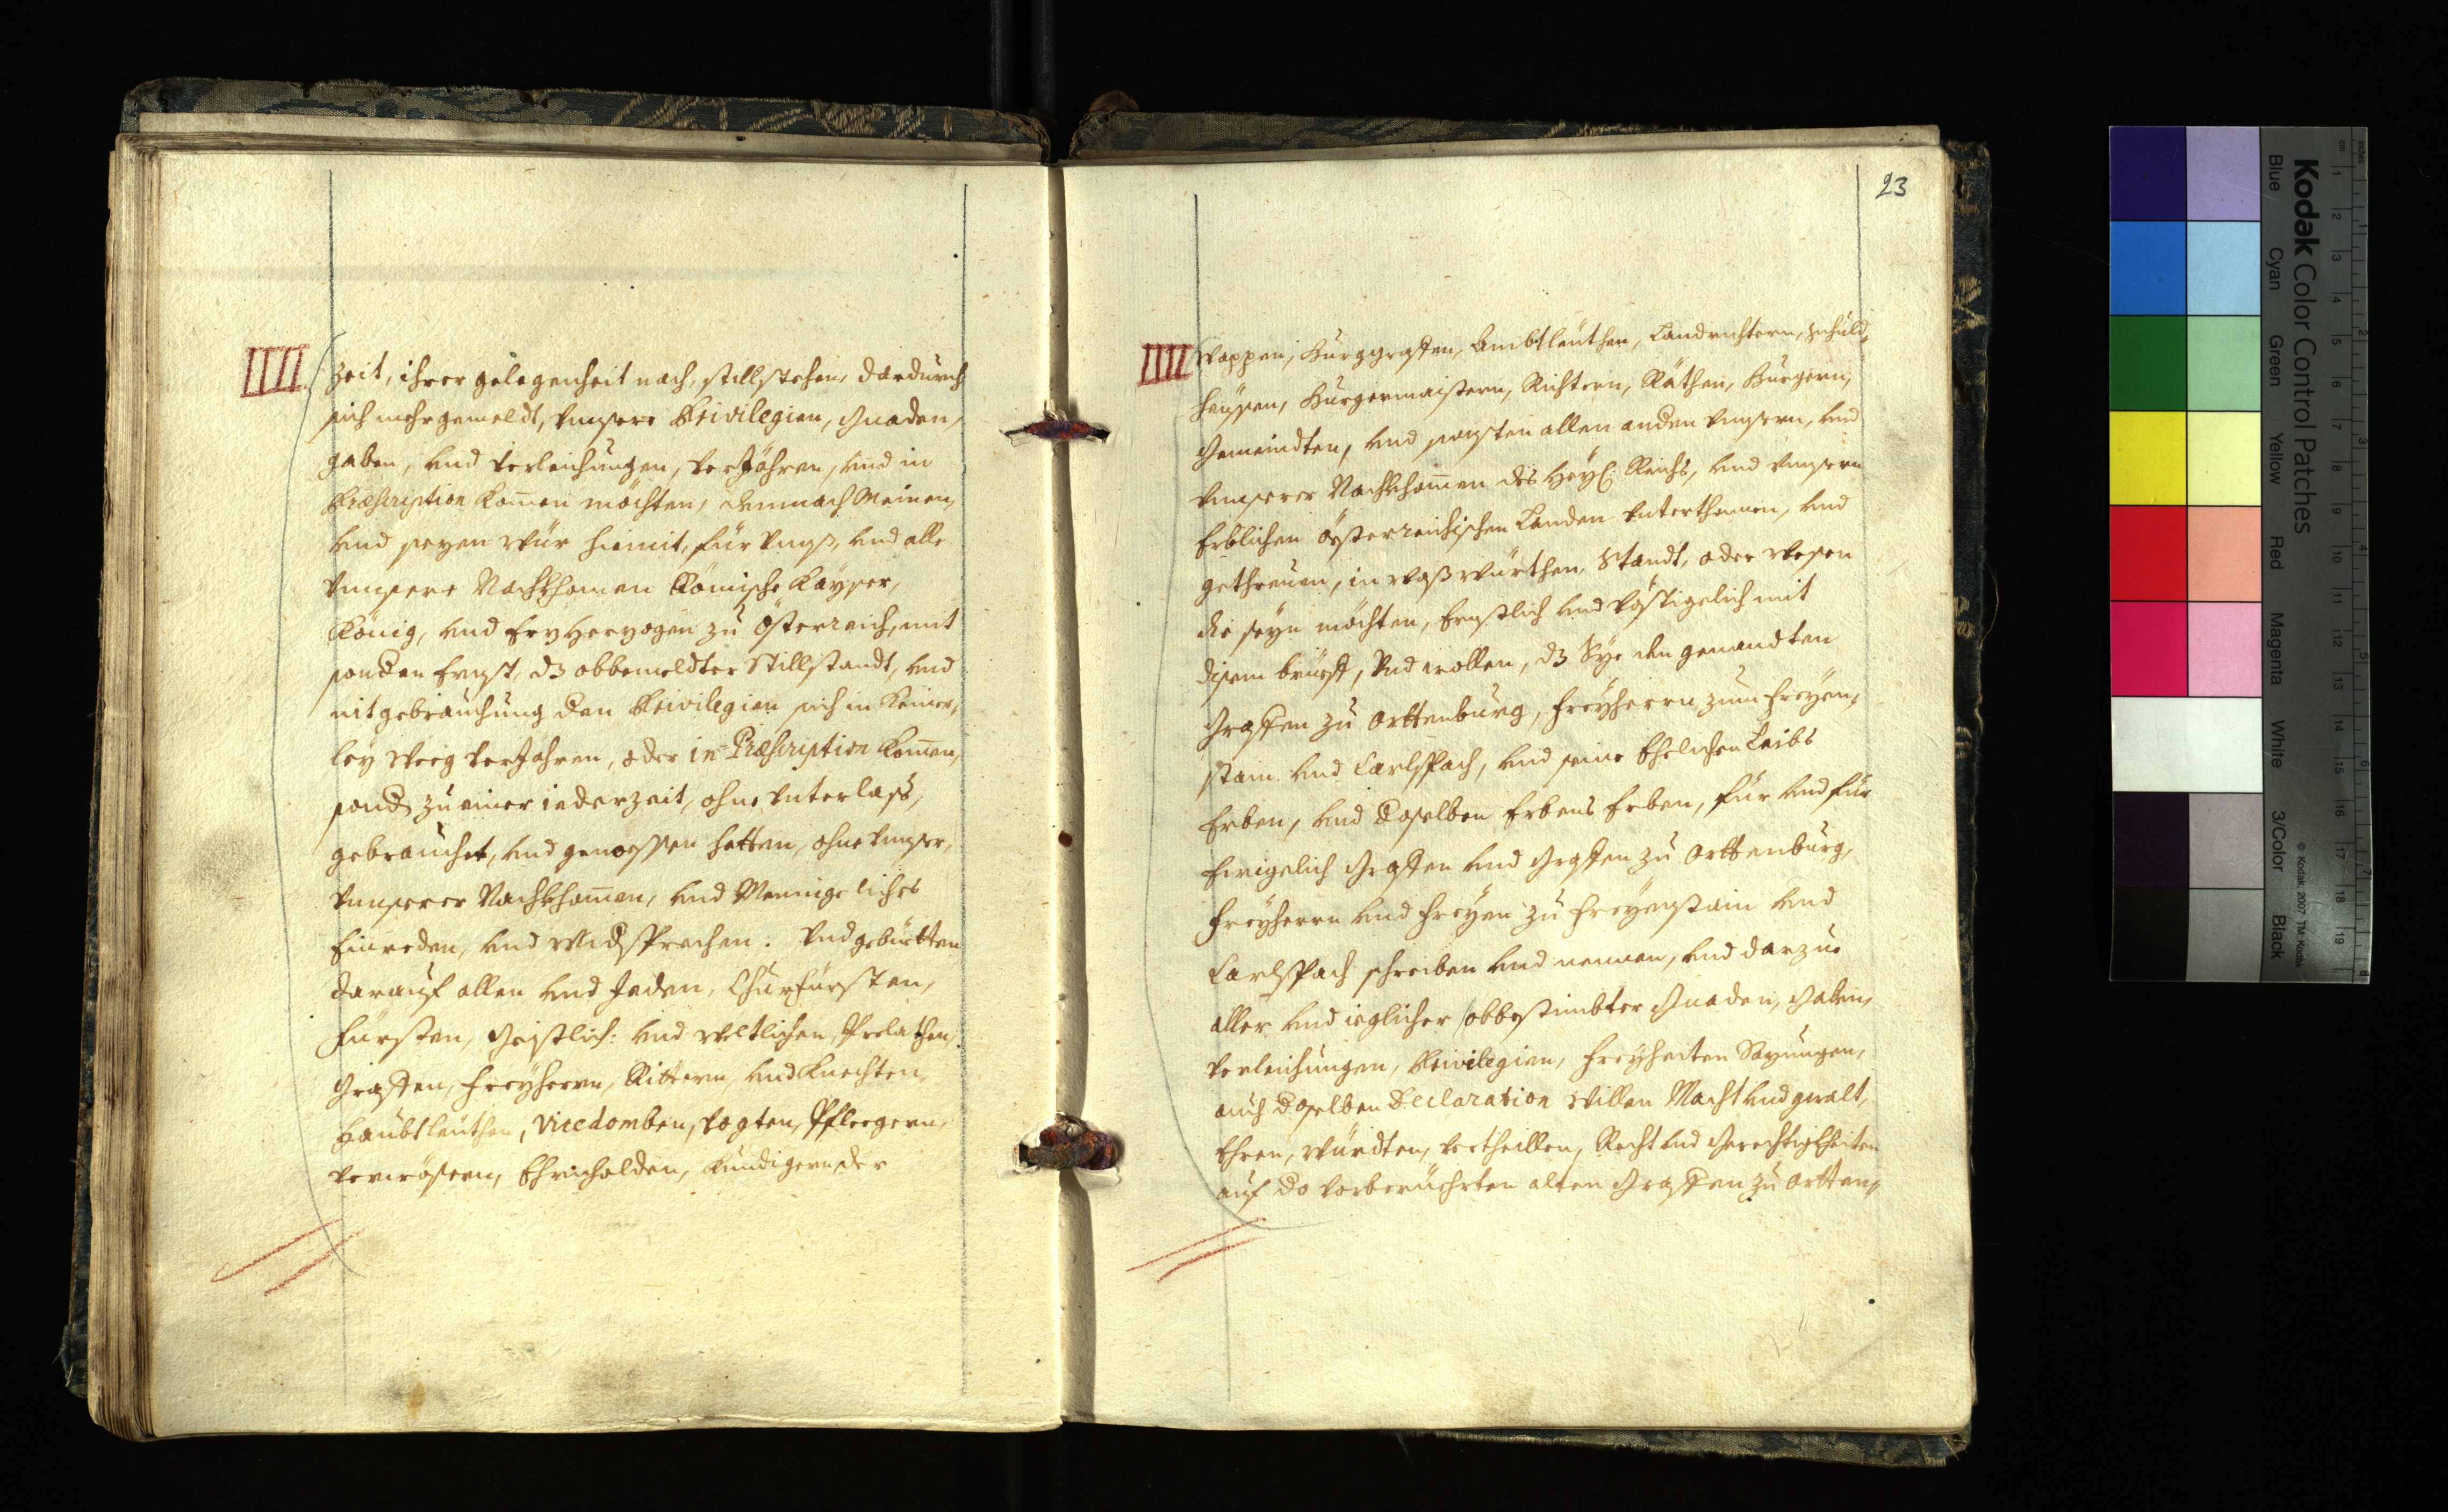 IIII
Zeit, ihrer gelegenheit nach, stillstehen, dardurch
sich mehrgemeldt, Vnsere Privilegien, Gnaden,
gaben, vnd Verleichungen, VerJähren, vnd in
Præscription komen möchten, demnach Meinen,
vnd sezen Wür hiemit, für Vnß, vnd alle
Vnsere Nachkhomen Römische Kayser,
König, vnd Erzherzogen zu Österreich, mit
sondern Ernst, dz obbemeldter Stillstandt, vnd
nit gebrauchung der Privilegien sich in keiner,
ley Weeg VerJahren, oder in Præscription komen,
sondern zu einer iederzeit, ohne Vnterlaß,
gebrauchet, vnd genossen hetten, ohne Vnser,
Vnserer Nachkhomen, vnd Mennigeliches
Einreden, vnd Widersprechen. Vnd gebietten
darauf allen vnd Jeden, Churfürsten,
Fürsten, Geistlich: vnd Weltlichen, Prelathen,
Graffen, Freyherrn, Rittern, vnd Knechten,
Haubtleuthen, Vicedomben, Vogten, Pfleegern,
Verwösern, Ehrnholden, Kündigern der
23
IIII
Wappen, Burggraffen, Ambtleuthen, Landrichtern, Schuld,
heüssen, Burgermaistern, Richtern, Räthen, Burgern,
Gemeindten, vnd sonsten allen andern Vnsern, vnd
Vnserer Nachkhomen des Heyl: Reichs, vnd Vnsern
Erblichen Össterreichischen Landen Vnterthanen, vnd
gethreuen, in Waß Würthen, Standt, oder Wesen
die seyn möchten, Ernstlich vnd Vöstigelich mit
disem brüeff, Vnd wollen, dz Sye den genandten
Graffen zu Orttenburg, Freyherrn zum Freyen,
stain vnd Carlspach, vnd seine Ehelichen Leibs
Erben, vnd derselben Erbens Erben, für vnd für
Ewigelich Graffen vnd Graffen zu Orttenburg,
Freyherrn vnd Freyen zu Freyenstain vnd
Carlspach schreiben vnd nennen, vnd darzue
aller vnd ieglicher obbestimbter Gnaden, Gaben,
Verleichungen, Privilegien, Freyheiten Sazungen,
auch derselben Declaration Willen Macht vnd gwalt,
Ehren, Würdten, Vortheillen, Recht vnd Gerechtigkheiten
auf der Vorberüehrten alten Graffen zu Ortten,